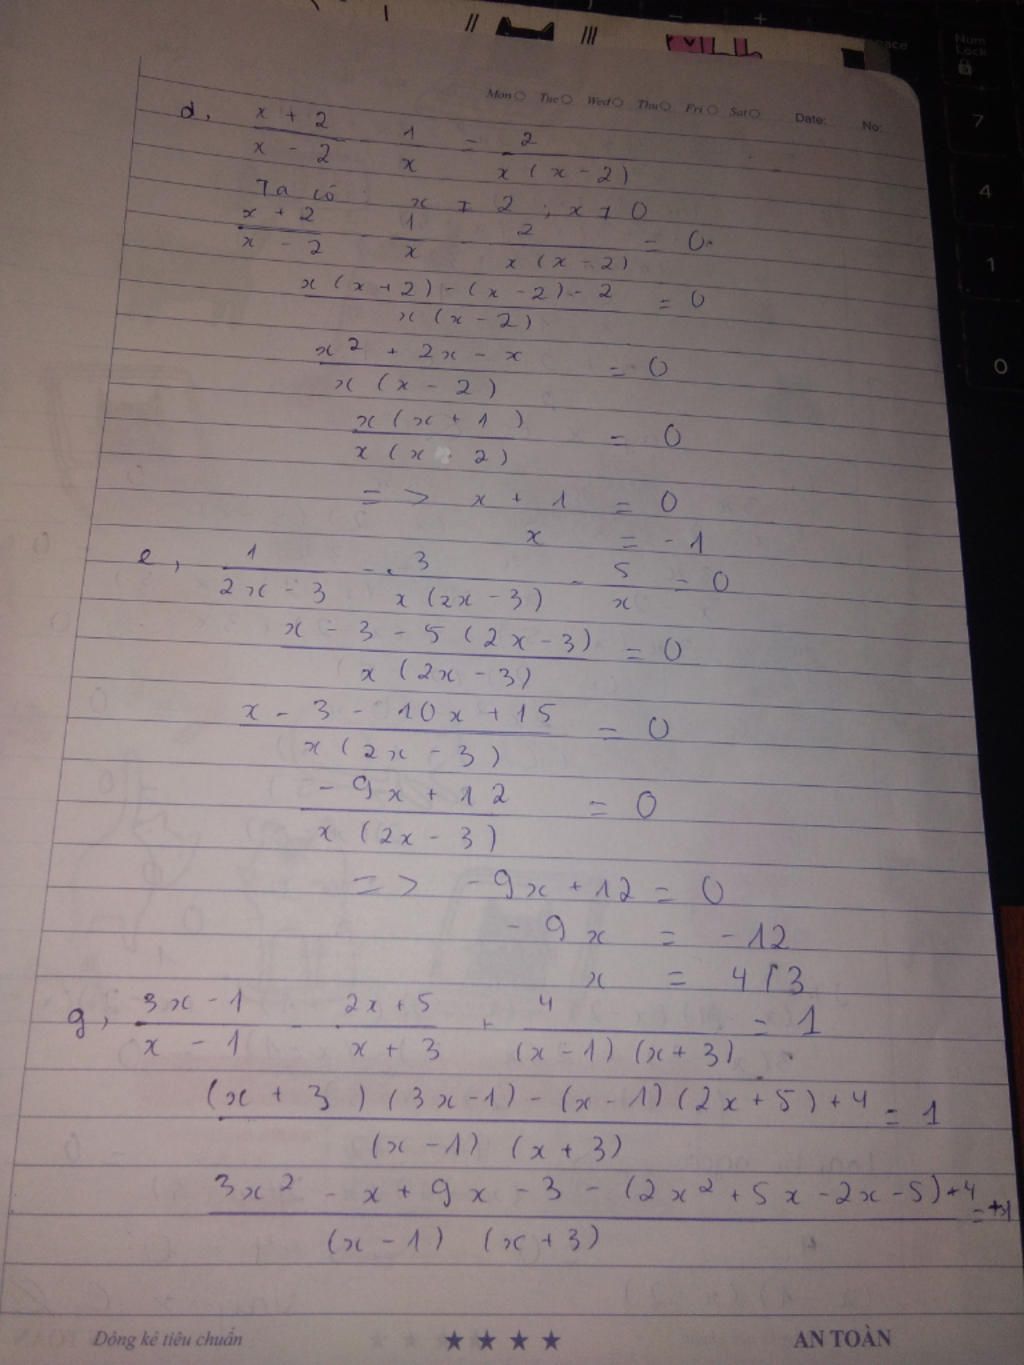 Num
Lock
7
4
1
0
Mon Tue Wed Thu Fri Sat Date: No:
d, (x + 2)/(x - 2) - 1/x = 2/(x(x-2))
Ta có x ≠ 2 ; x ≠ 0
(x + 2)/(x - 2) - 1/x - 2/(x(x-2)) = 0
(x(x+2)-(x-2)-2)/(x(x-2)) = 0
(x² + 2x - x)/(x(x-2)) = 0
(x(x+1))/(x(x-2)) = 0
=> x + 1 = 0
x = -1
e, 1/(2x-3) - 3/(x(2x-3)) - 5/x = 0
(x - 3 - 5(2x-3))/(x(2x-3)) = 0
(x - 3 - 10x + 15)/(x(2x-3)) = 0
(-9x+12)/(x(2x-3)) = 0
=> -9x+12 = 0
-9x = -12
x = 4/3
g, (3x-1)/(x-1) - (2x+5)/(x+3) + 4/((x-1)(x+3)) = 1
((x+3)(3x-1)-(x-1)(2x+5)+4)/((x-1)(x+3)) = 1
(3x² - x + 9x - 3 - (2x²+5x-2x-5)+4)/((x-1)(x+3)) = 1
Dòng kẻ tiêu chuẩn ★ ★ ★ ★ AN TOÀN